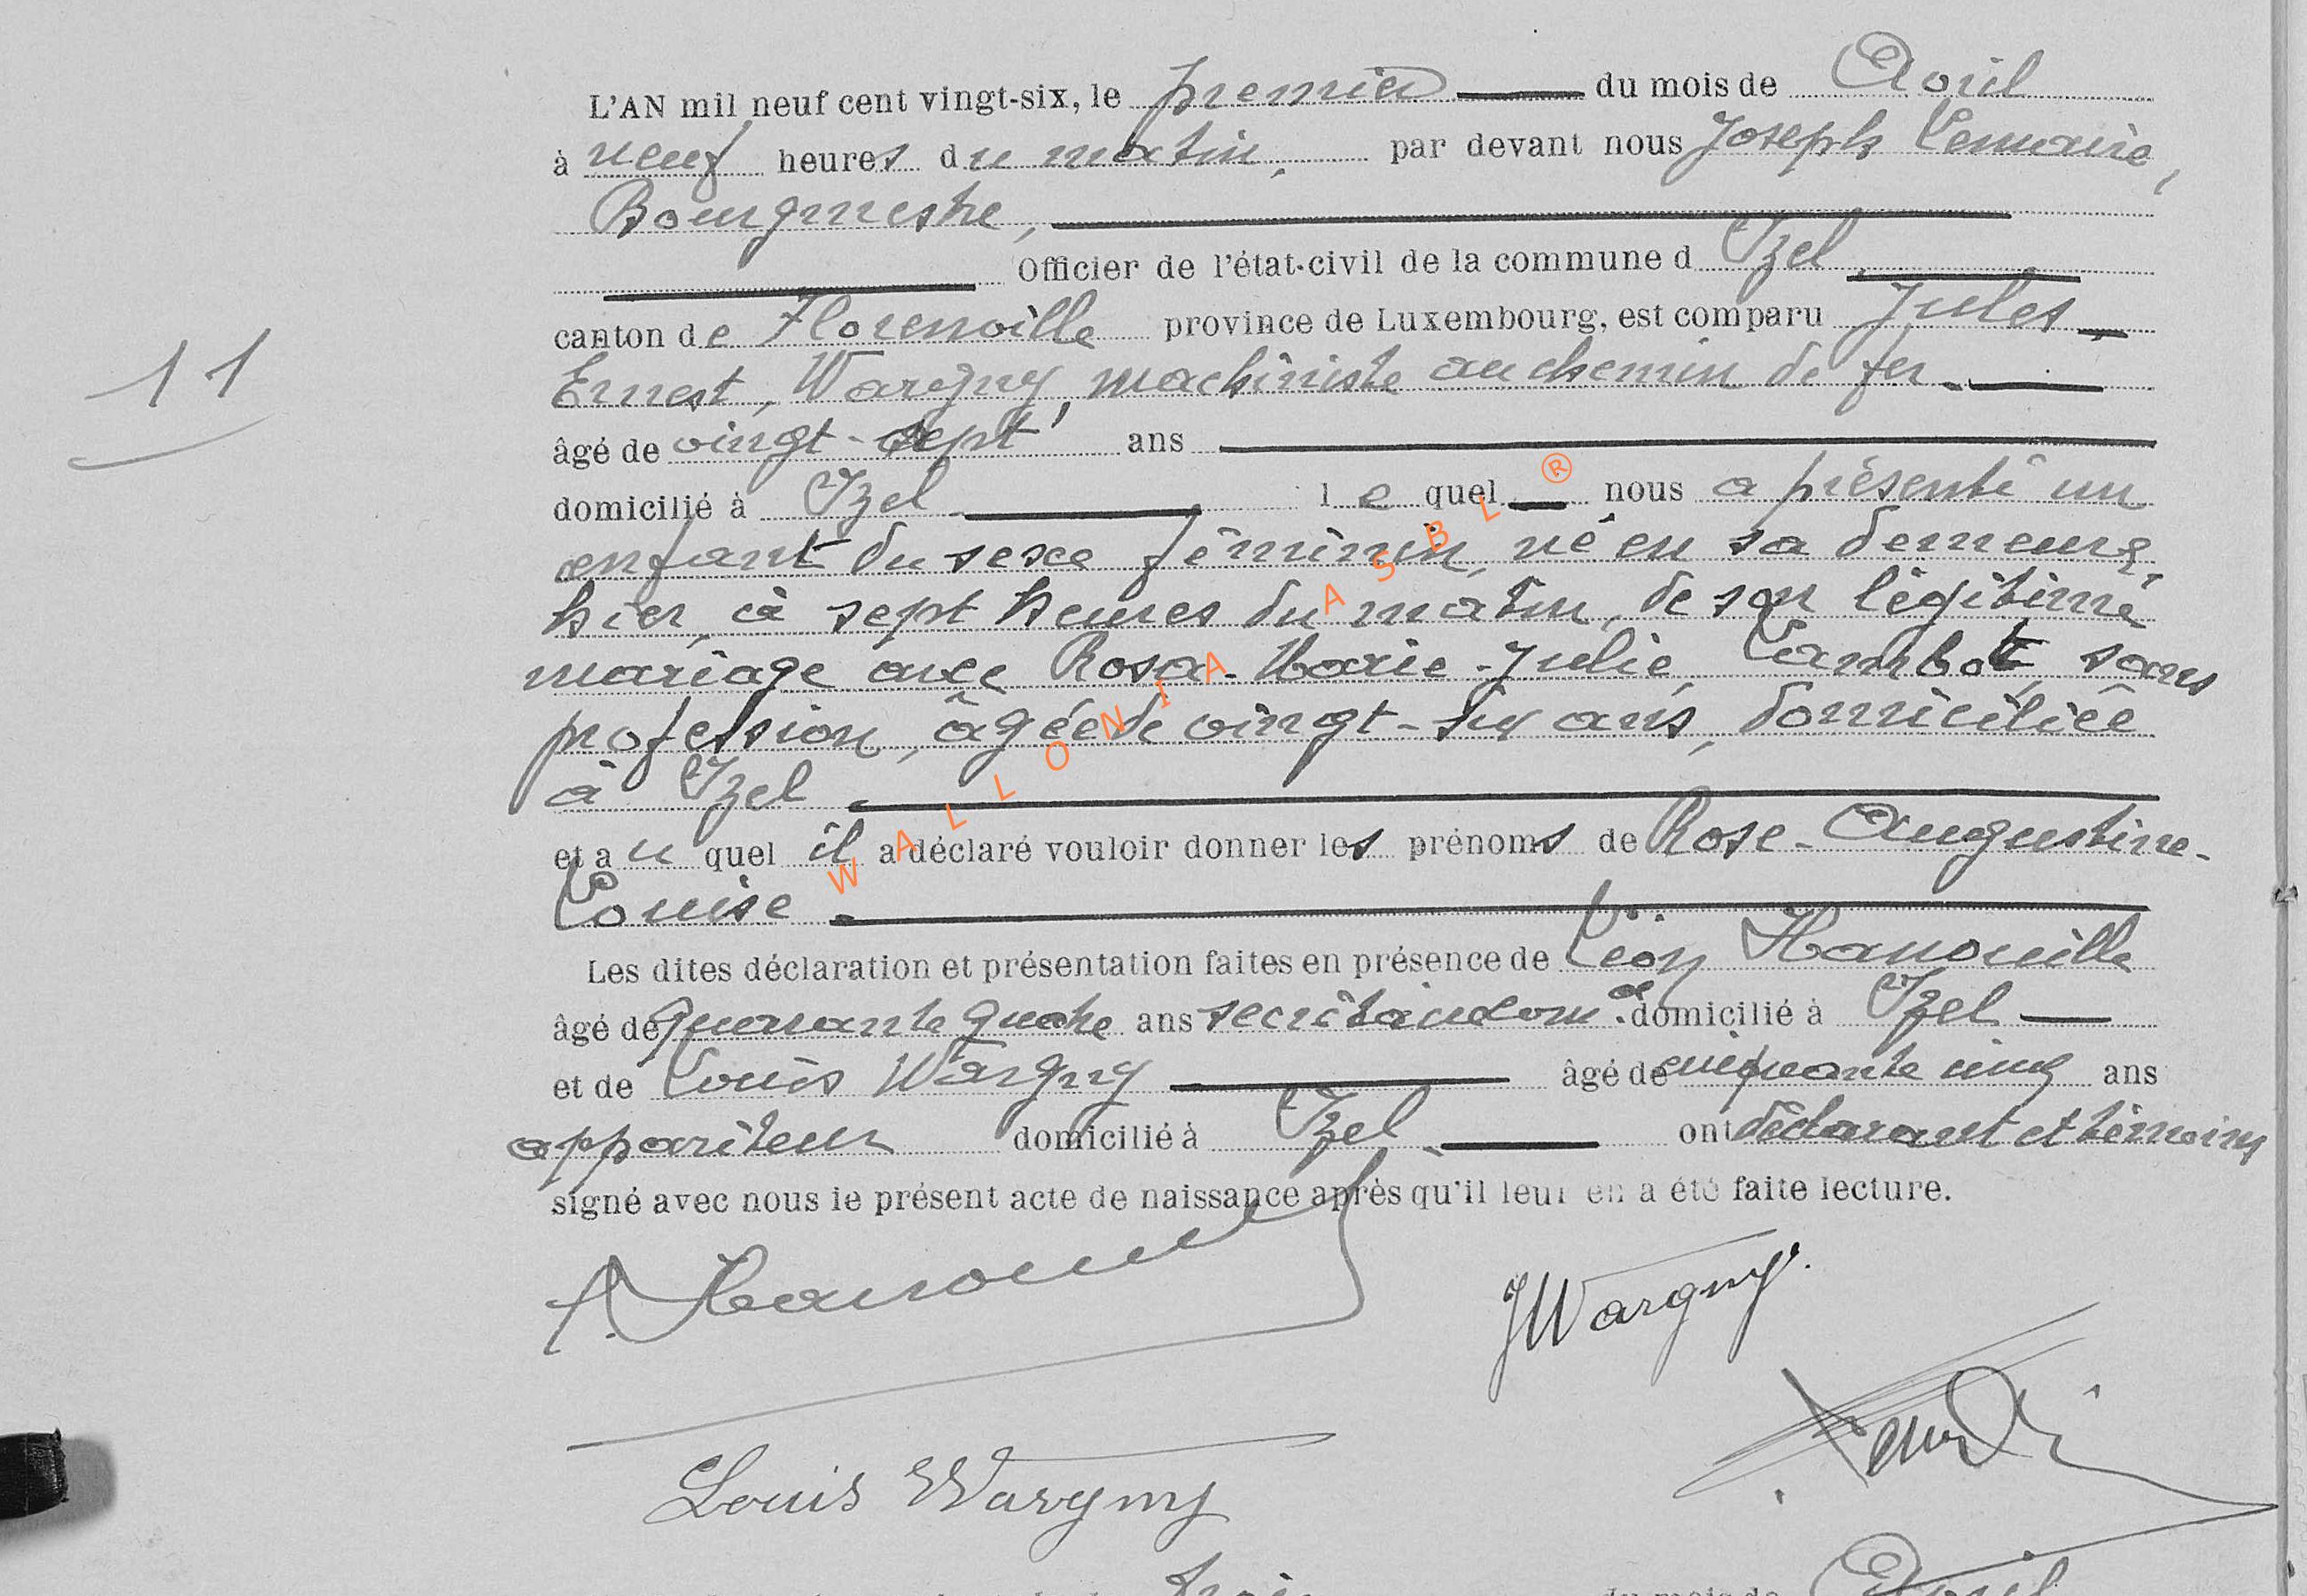 L'AN mil neuf cent vingt-six, le premier du mois de Avril
à neuf heures du matin, par devant nous Joseph Lemaire,
Bourgmestre,
Officier de l'état-civil de la commune d Izel,
canton de Florenville province de Luxembourg, est comparu Jules
11
Ernest, Wargny, machiniste au chemin de fer
âgé de vingt-sept ans
domicilié à Izel lequel nous a présenté un
enfant du sexe féminin, né en sa demeure,
hier, à sept heures du matin, de son légitime
mariage avec Rosa-Marie-Julie, Lambot, sans
profession, âgée de vingt-six ans, domiciliée
à Izel
et auquel il a déclaré vouloir donner les prénoms de Rose-Augustine-
Louise
Les dites déclaration et présentation faites en présence de Léon Hanouille
âgé de quarante quatre ans domicilié à Izel
et de Louis Wargny âgé de cinquante cinq ans
appariteur domicilié à Izel ont déclarant et témoins
signé avec nous le présent acte de naissance après qu'il leur en a été faite lecture.
JWargny.
Louis Wargny
du mois de Avril
WALLONIA ASBL ®